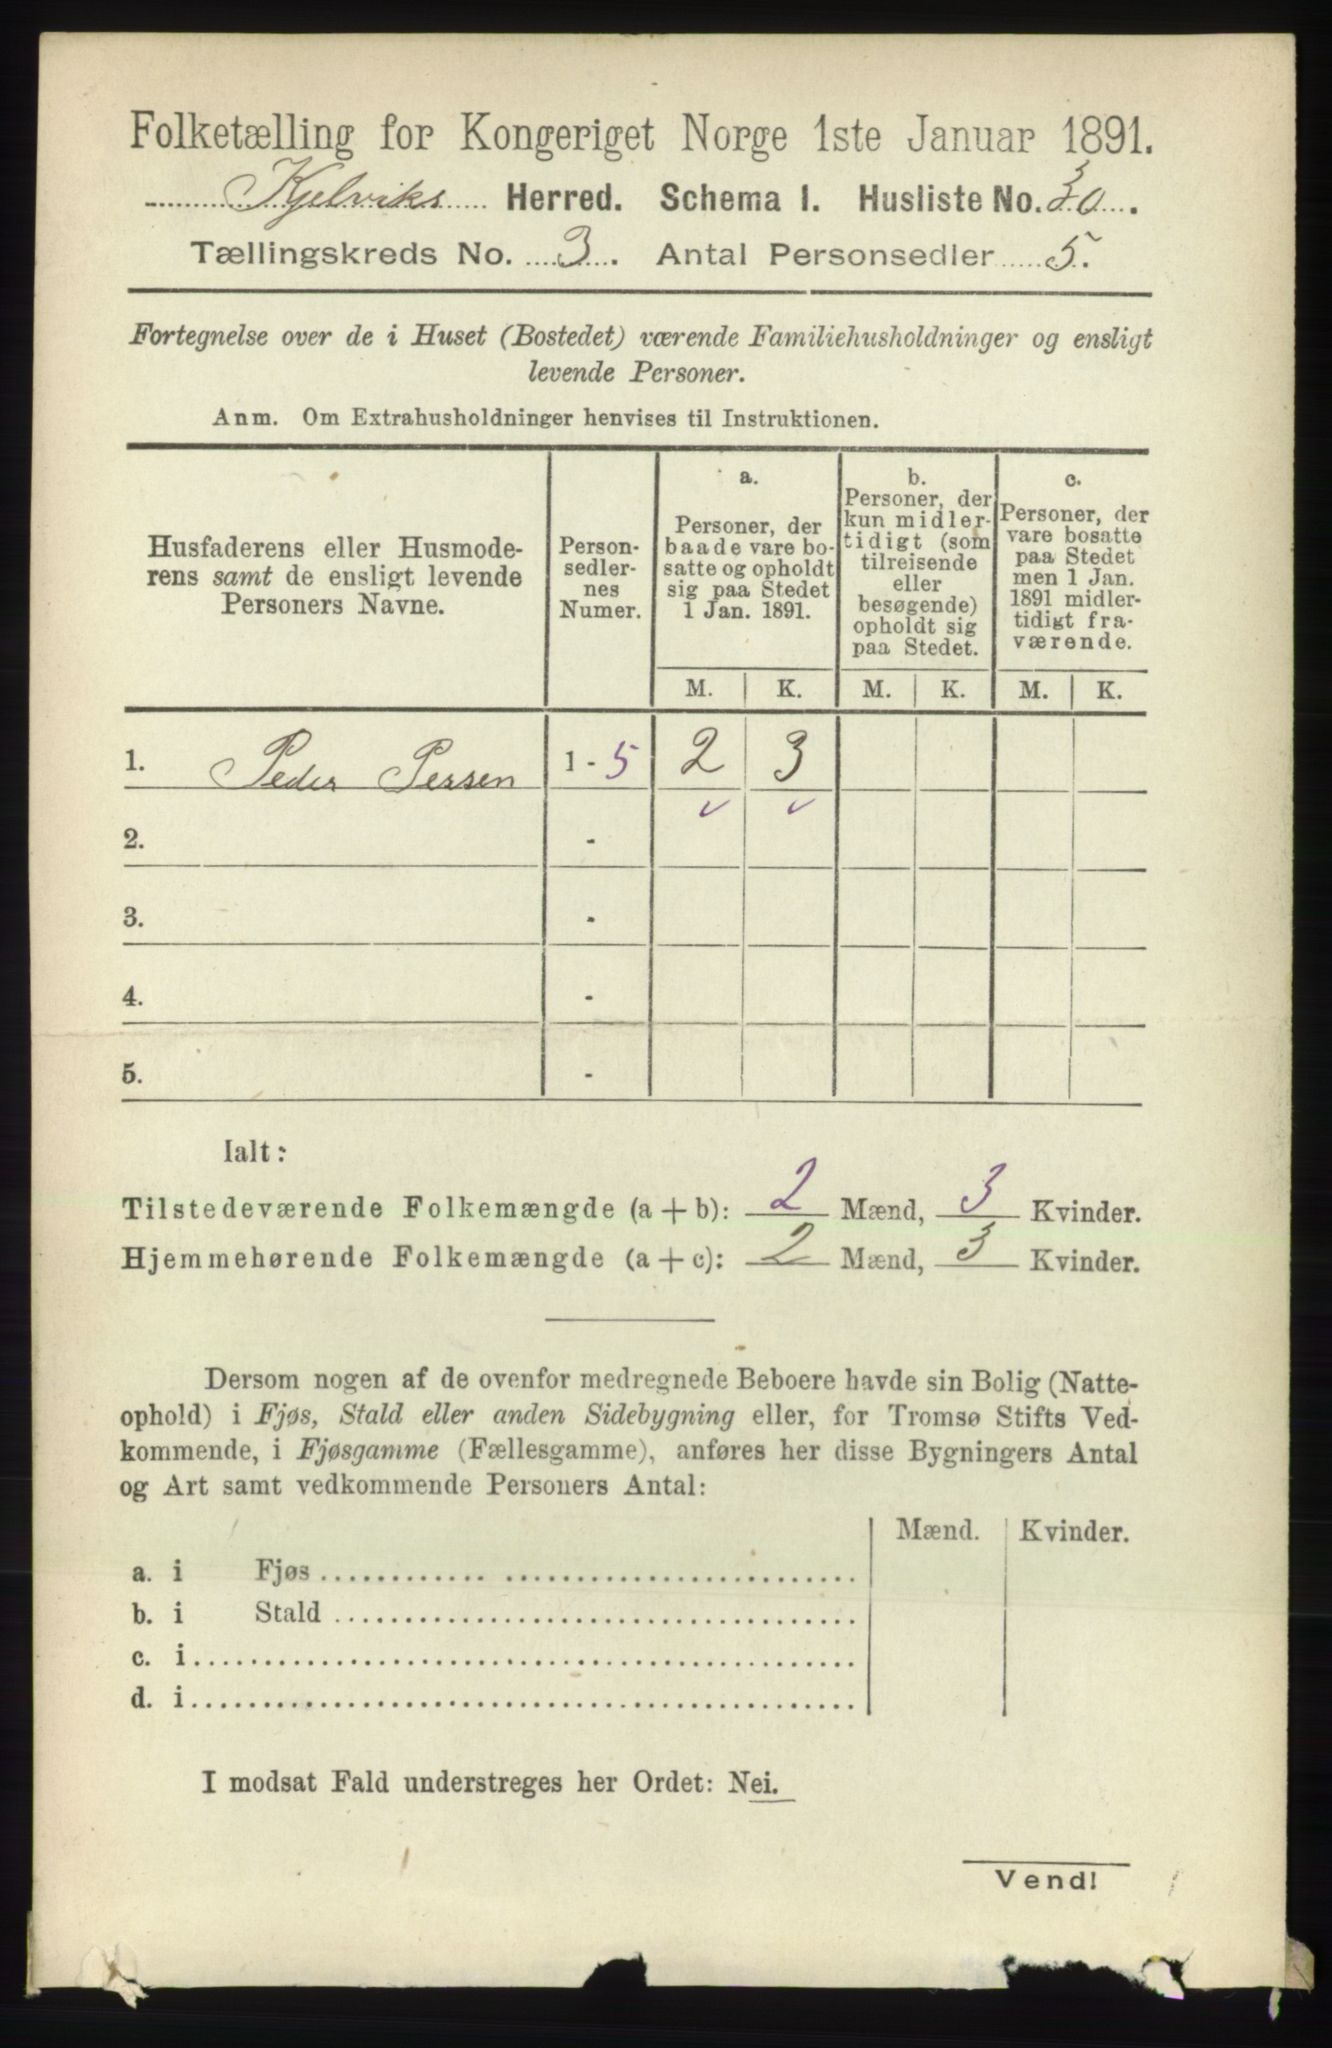 Folketælling for Kongeriget Norge 1ste Januar 1891.
Kjelviks Herred. Schema I. Husliste No. 30.
Tællingskreds No. 3. Antal Personsedler 5.
Fortegnelse over de i Huset (Bostedet) værende Familiehusholdninger og ensligt
levende Personer.
Anm. Om Extrahusholdninger henvises til Instruktionen.
Husfaderens eller Husmode-
rens samt de ensligt levende
Personers Navne.
Person-
sedler-
nes
Numer.
a.
Personer, der
baade vare bo-
satte og opholdt
sig paa Stedet
1 Jan. 1891.
b.
Personer, der
kun midler-
tidigt (som
tilreisende
eller
besøgende)
opholdt sig
paa Stedet.
c.
Personer, der
vare bosatte
paa Stedet
men 1 Jan.
1891 midler-
tidigt fra-
værende.
M. K. M. K. M. K.
1. Peder Persen 1 - 5 2 3
2. -
3. -
4. -
5. -
Ialt:
Tilstedeværende Folkemængde (a + b): 2 Mænd, 3 Kvinder.
Hjemmehørende Folkemængde (a + c): 2 Mænd, 3 Kvinder.
Dersom nogen af de ovenfor medregnede Beboere havde sin Bolig (Natte-
ophold) i Fjøs, Stald eller anden Sidebygning eller, for Tromsø Stifts Ved-
kommende, i Fjøsgamme (Fællesgamme), anføres her disse Bygningers Antal
og Art samt vedkommende Personers Antal:
Mænd. Kvinder.
a. i Fjøs
b. i Stald
c. i
d. i
I modsat Fald understreges her Ordet: Nei.
Vend!